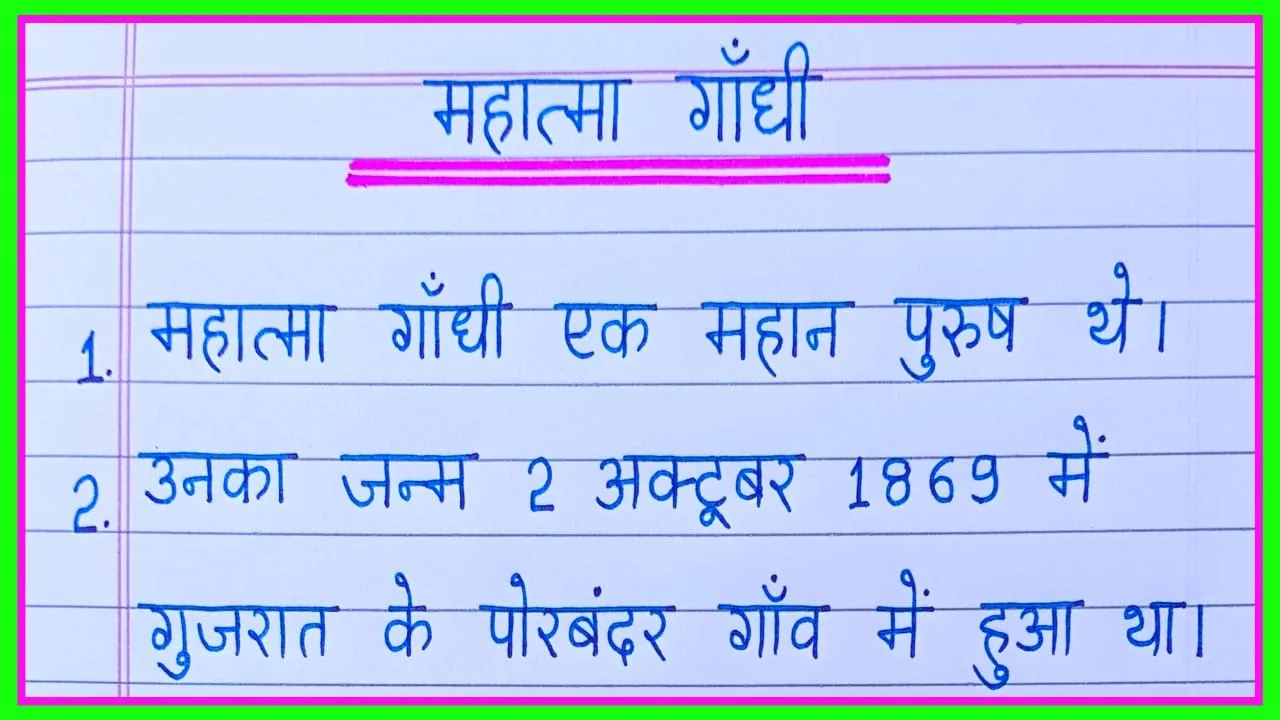 महात्मा गाँधी
1. महात्मा गाँधी एक महान पुरुष थे।
2. उनका जन्म 2 अक्टूबर 1869 में
गुजरात के पोरबंदर गाँव में हुआ था।